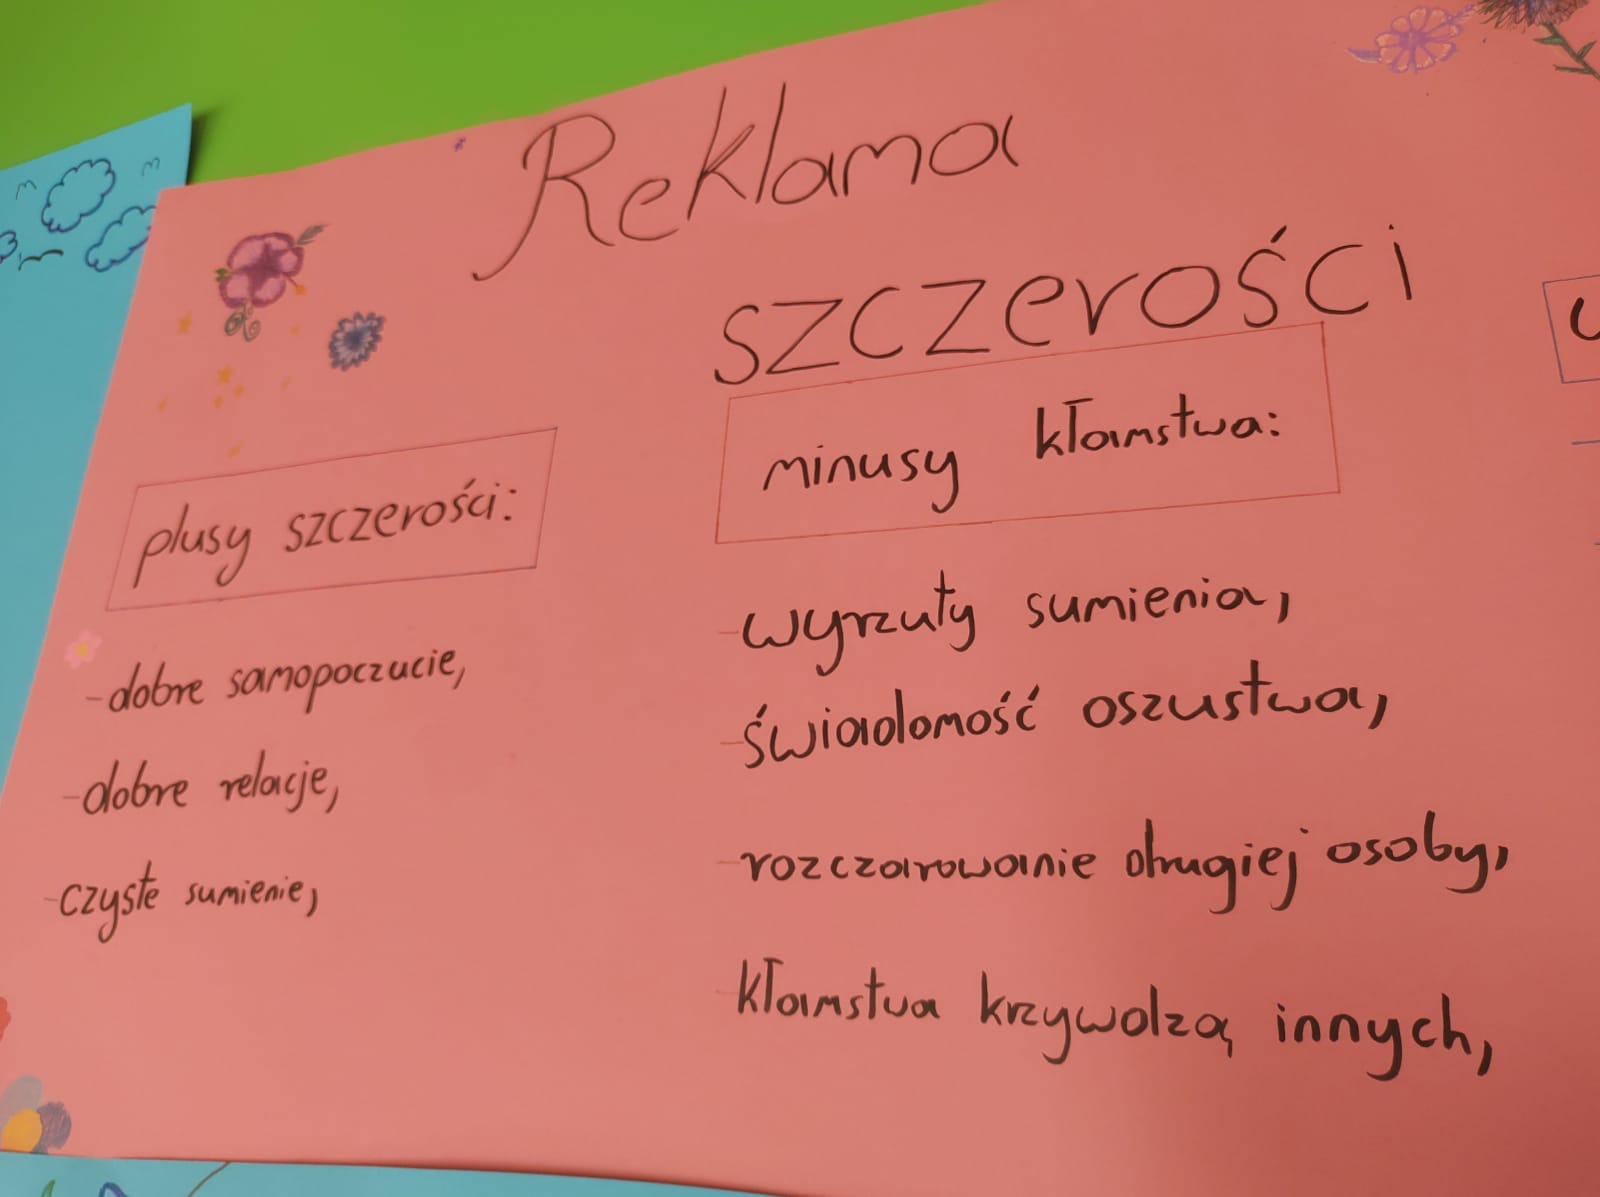 Reklama
szczerości
plusy szczerości:
-dobre samopoczucie,
-dobre relacje,
-czyste sumienie,
minusy kłamstwa:
-wyrzuty sumienia,
-świadomość oszustwa,
-rozczarowanie drugiej osoby,
-kłamstwa krzywdzą innych,